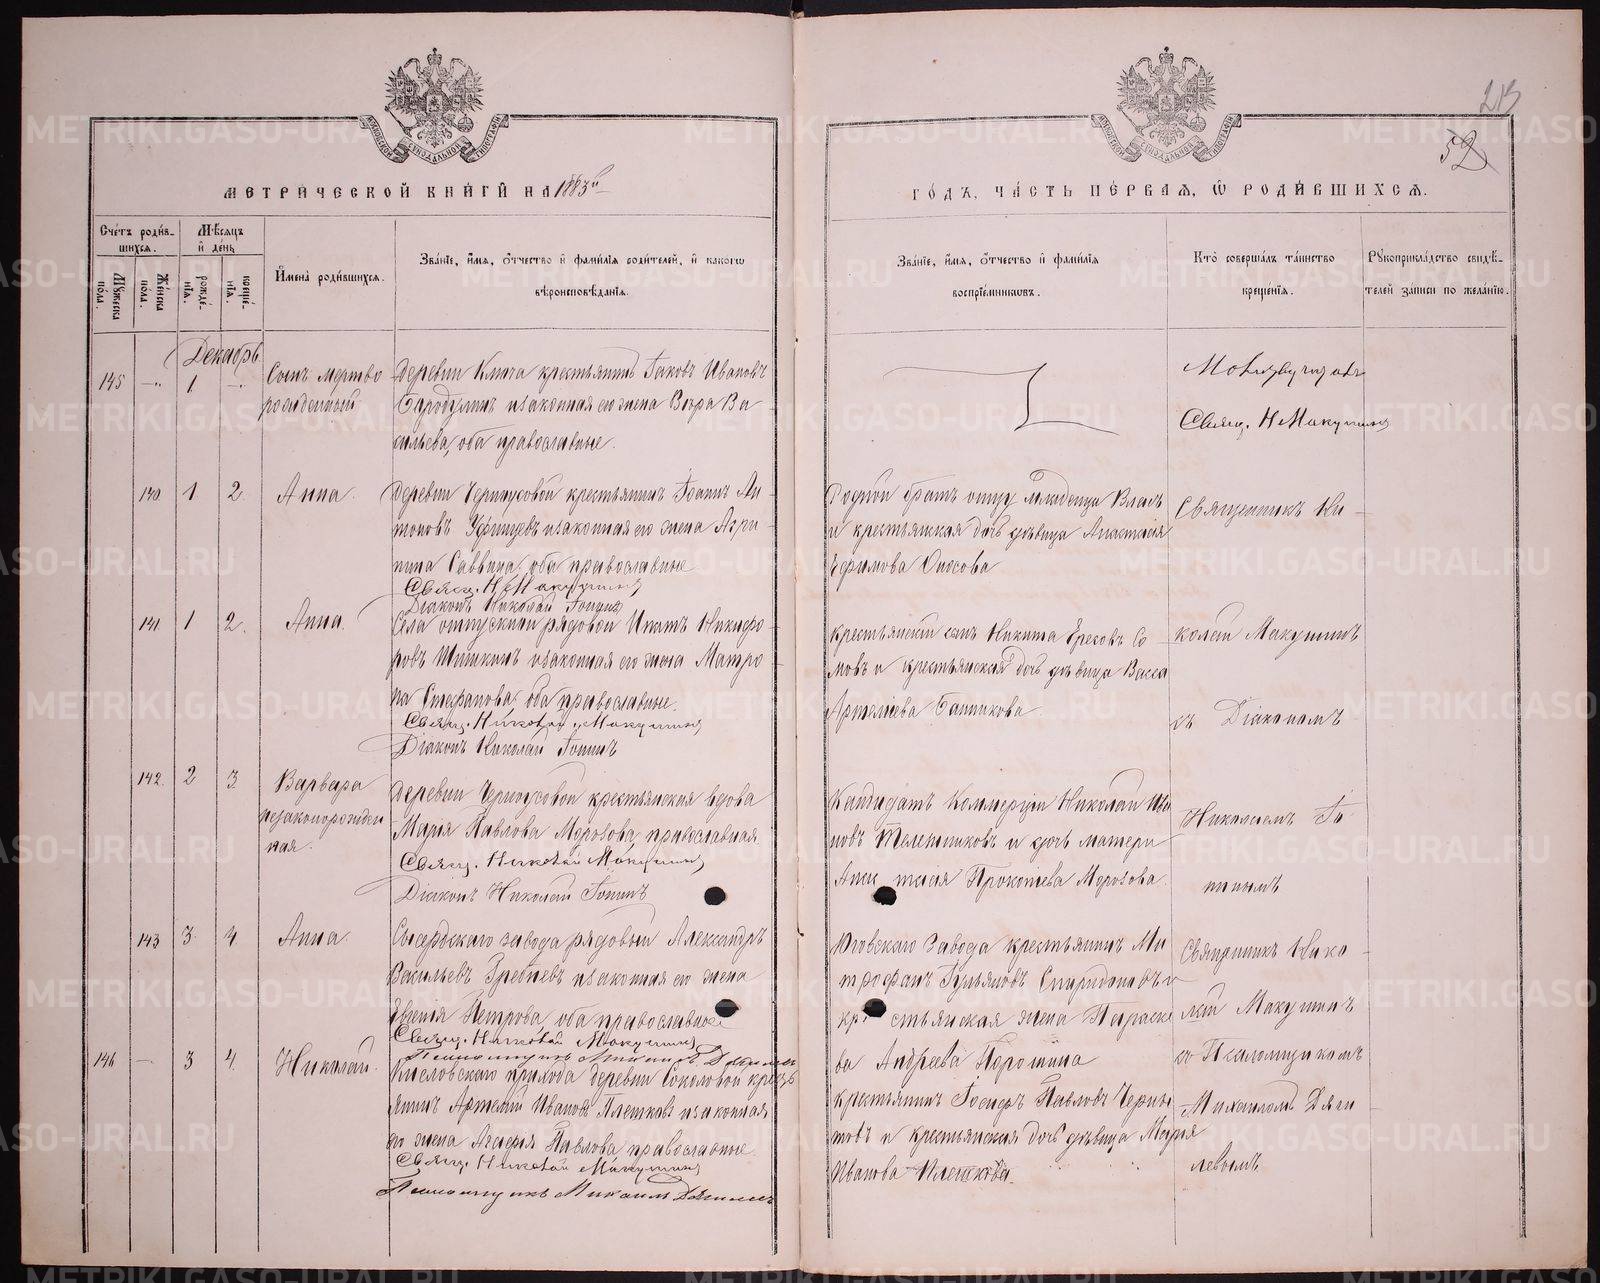 213
52
МЕТРИЧЕСКОЙ КНИГИ НА 1883й
ГОДЪ, ЧАСТЬ ПЕРВАЯ, Ѽ РОДИВШИХСЯ.
Счетъ родившихся.
Мужеска пола.
Женска пола.
Мѣсяцъ и день
рожденія.
крещенія.
Имена родившихся.
Званіе, имя, отчество и фамилія родителей, и какого
вѣроисповѣданія.
Званіе, имя, отчество и фамилія
воспріемниковъ.
Кто совершалъ таинство
крещенія.
Рукоприкладство свидѣ-
телей записи по желанію.
Декабрь
145 — 1 —
Сынъ мертво
рожденный
Деревни Ключа крестьянинъ Іаковъ Ивановъ
и законная его жена Вѣра Ва
сильева, оба православные.
Свящ. Н Макушинъ
140 1 2
Анна.
Деревни Черноусовой крестьянинъ Іоаннъ Ан
тоновъ и законная его жена Агри
пина Саввина, оба православные
Свящ. Н Макушинъ
Діаконъ Николай Топинъ
Родной братъ отцу младенца
и крестьянская дочь дѣвица Анастасія
Ефимова Оносова
Священникъ Ни
141 1 2.
Анна.
Села отпускной рядовой Ипатъ Никифо
ровъ Шишкинъ и законная его жена Матро
на Стефанова, оба православные.
Свящ. Николай Макушинъ
Діаконъ Николай Топинъ
крестьянскій сынъ Никита
и крестьянская дочь дѣвица Васса
Артемьева Банникова
колай Макушинъ
съ Діакономъ
142. 2 3
Варвара
незаконорожден
ная.
Деревни Черноусовой крестьянская вдова
Марія Павлова Морозова, православная.
Свящ. Николай Макушинъ
Діаконъ Николай Топинъ
Кандидатъ Коммерціи Николай Ива
новъ Телешниковъ и дочь матери
Анас тасія Прокопьева Морозова.
Николаемъ То
пинымъ
143 3. 4
Анна.
Сысердскаго завода рядовый Александръ
Васильевъ Гребневъ и законная его жена
Евгенія Петрова, оба православные
Свящ. Николай Макушинъ
Псаломщикъ Михаилъ
завода крестьянинъ Ми
трофанъ Спиридоновъ и
кре стьянская жена Параске
ва Андреева Порошина
Священникъ Нико
лай Макушинъ
съ Псаломщикомъ
146 — 3 4.
Николай.
Кисловскаго прихода деревни Соколовой кресть
янинъ Артемій Ивановъ Плетковъ и законная
его жена Агафія Павлова, православные.
Свящ. Николай Макушинъ
Псаломщикъ Михаилъ
крестьянинъ Іосифъ Павловъ Черны
и крестьянская дочь дѣвица Марія
Иванова
Михаиломъ Дяги
левымъ